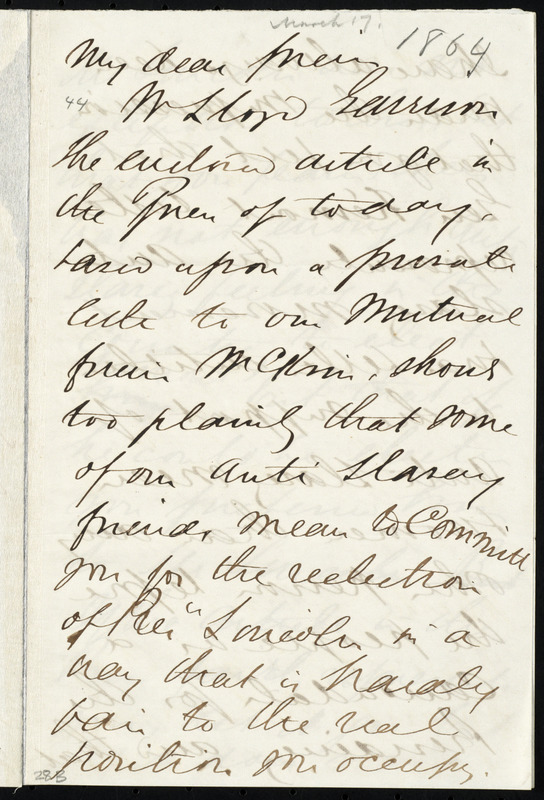 March 17. 1864
My dear friend
44 Wm Lloyd Garrison
The enclosed article in
the Press of today,
based upon a private
letter to our mutual
friend McKim, shows
too plainly that some
of our Anti Slavery
friends mean to Committ
you for the reelection
of Pres" Lincoln in a
way that is hardly
fair to the real
position you occupy.
28B